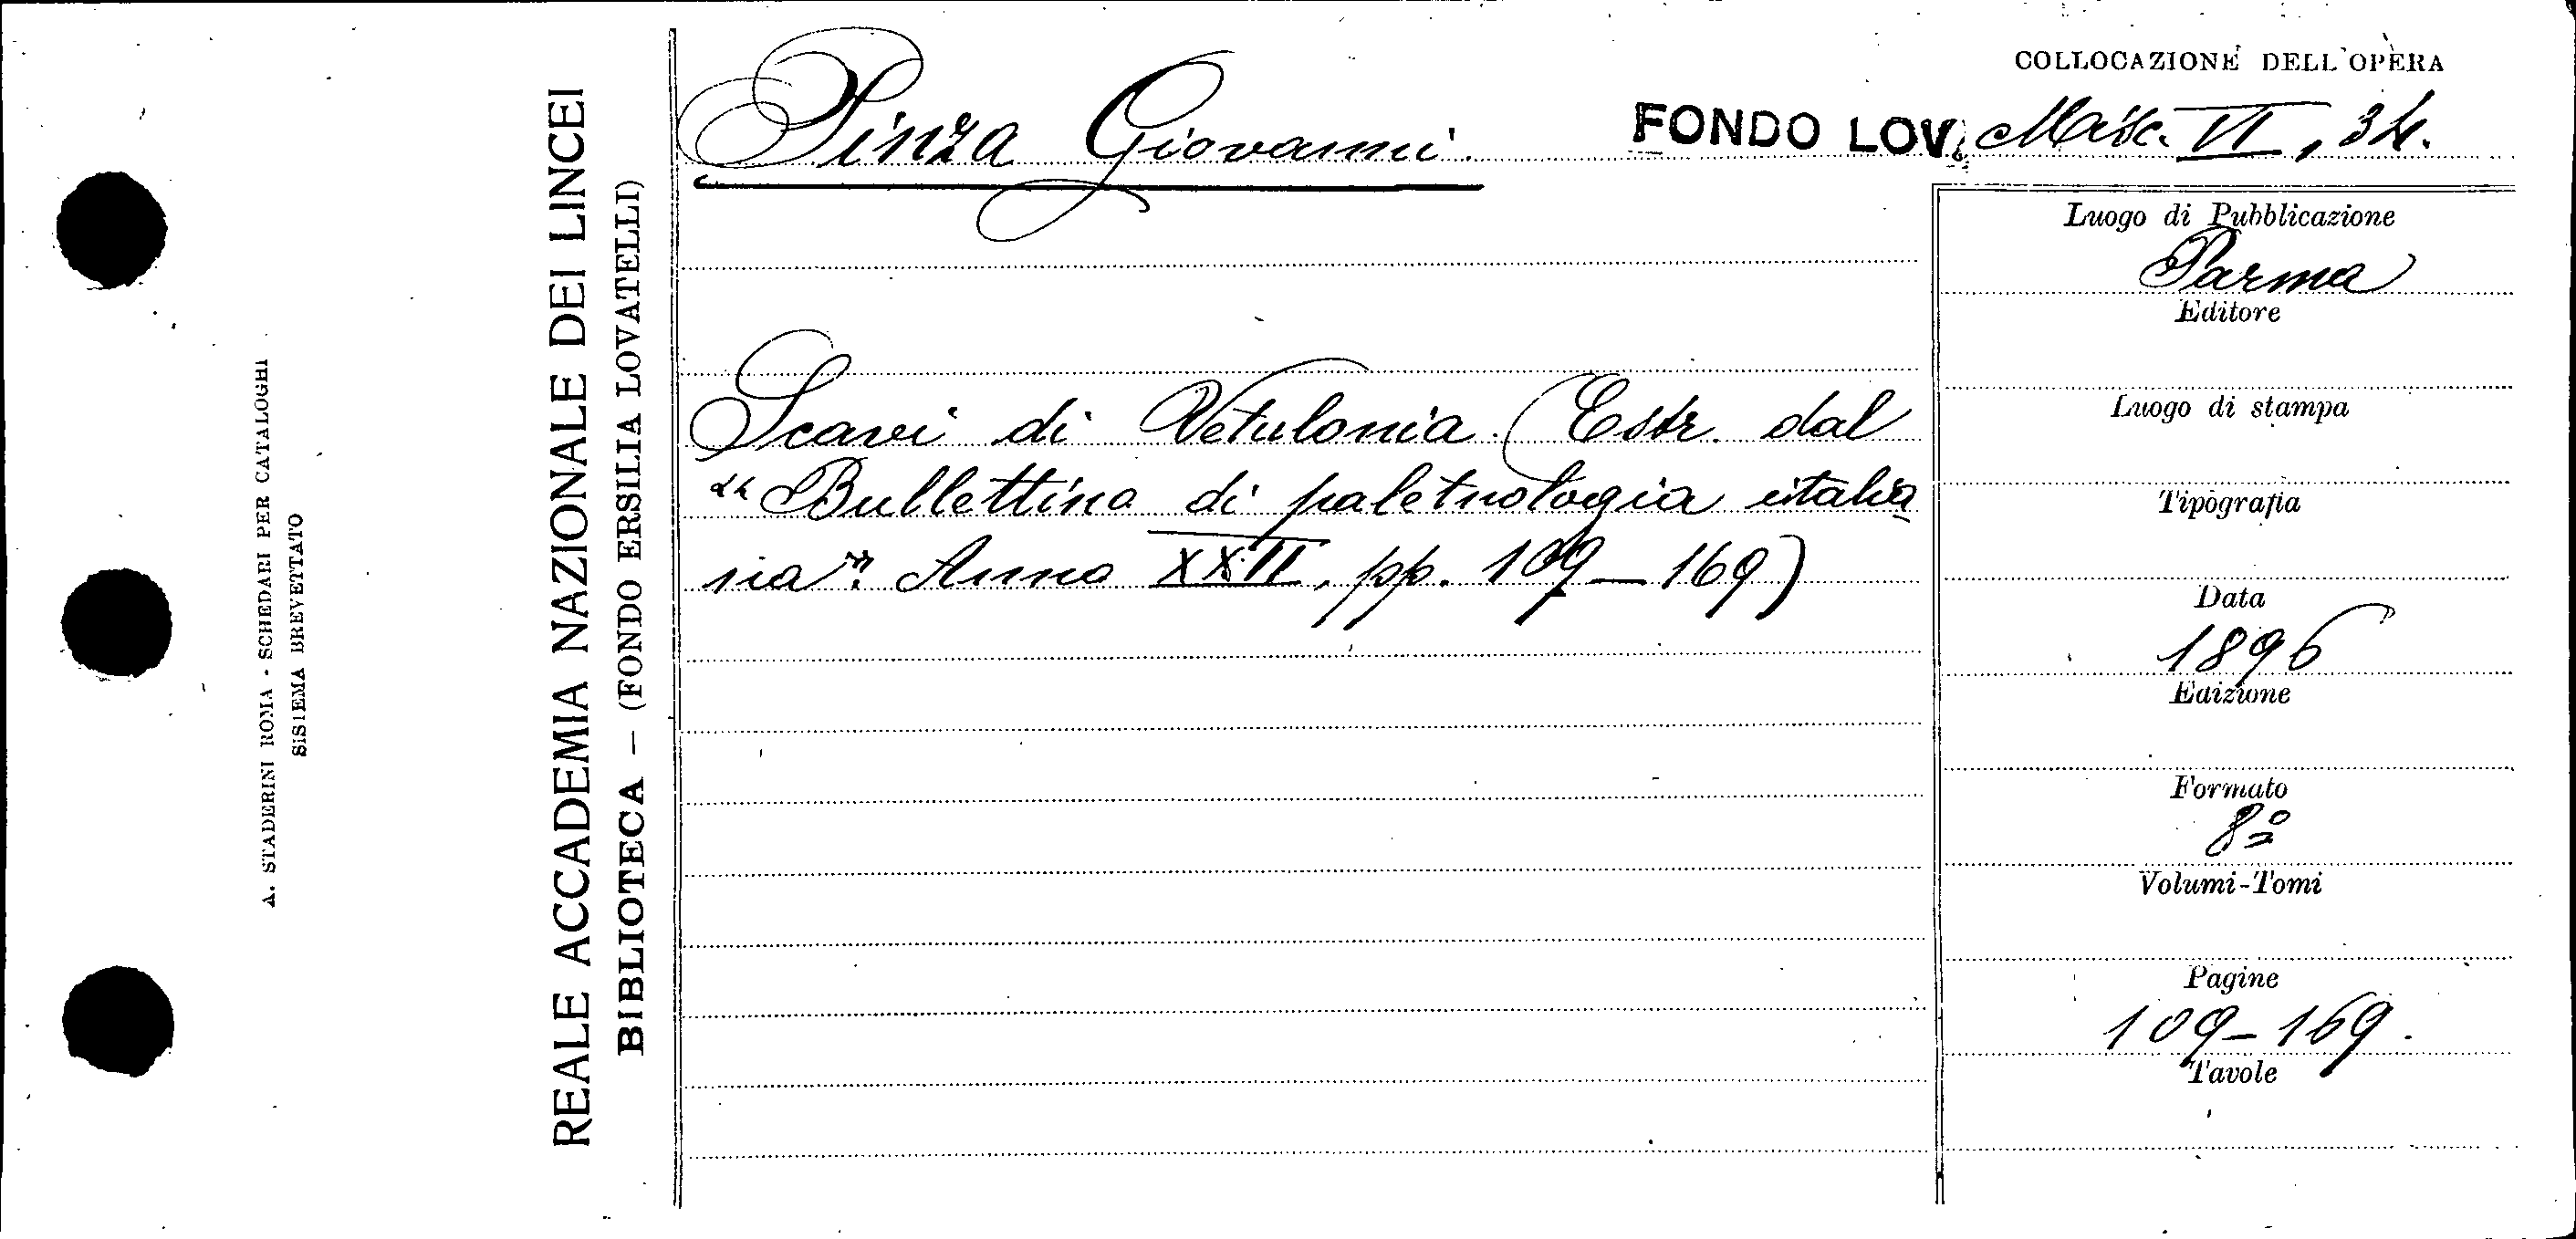 A. STADERINI ROMA - SCHEDARI PER CATALOGHI
SISTEMA BREVETTATO
REALE ACCADEMIA NAZIONALE DEI LINCEI
BIBLIOTECA — (FONDO ERSILIA LOVATELLI)
Pinza Giovanni.
COLLOCAZIONE DELL'OPERA
FONDO LOV. Misc. VI, 34.
Scavi di Vetulonia. (Estr. dal
"Bullettino di paletnologia italia
na". Anno XXII, pp. 109-169)
Luogo di Pubblicazione
Parma
Editore
Luogo di stampa
Tipografia
Data
1896
Edizione
Formato
8º
Volumi-Tomi
Pagine
109-169.
Tavole